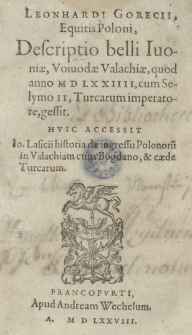 LEONHARDI GORECII,
Equitis Poloni,
Descriptio belli Iuo-
niæ, Voiuodæ Valachiæ, quod
anno M D LXXIIII, cum Se-
lymo II, Turcarum imperato-
re, gessit.
HVIC ACCESSIT
Io. Lasicii historia de ingressu Polonorũ
in Valachiam cum Bogdano, & cæde
Turcarum.
FRANCOFVRTI,
Apud Andream Wechelum.
A. M D LXXVIII.